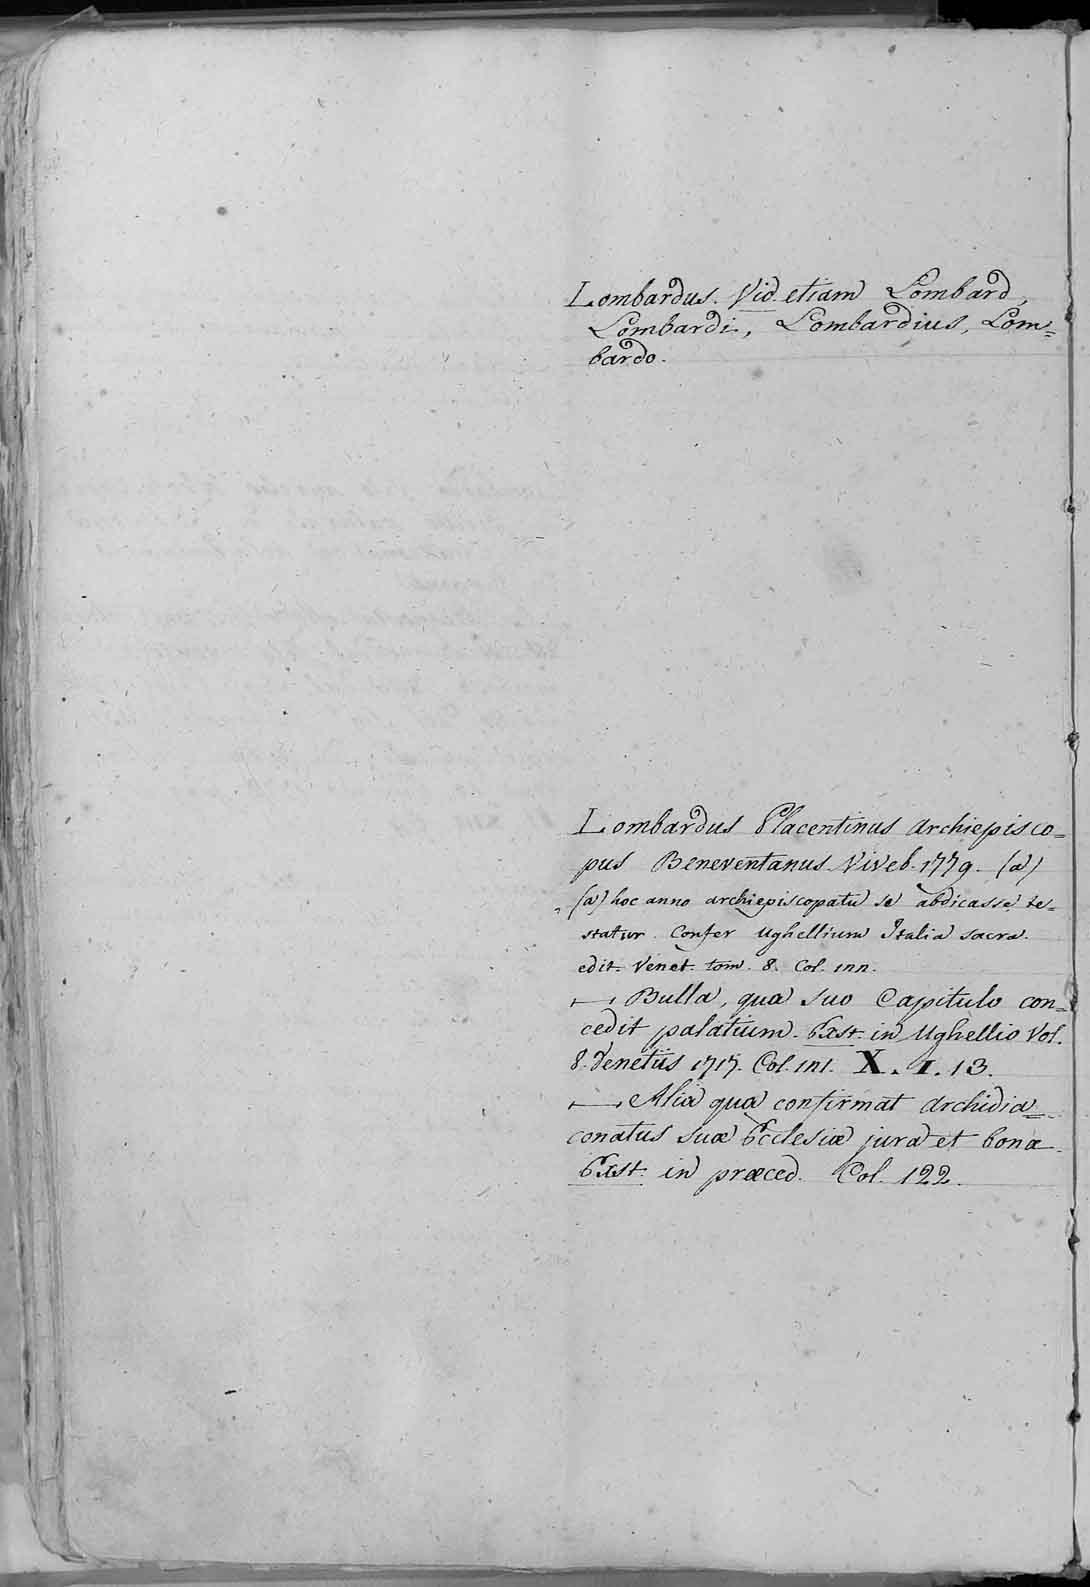 Lombardus. Vid. etiam Lombard,
Lombardi, Lombardius, Lom=
bardo.
Lombardus Placentinus Archiepisco=
pus Beneventanus Viveb. 1779. (a)
(a) hoc anno archiepiscopatu se abdicasse te=
statur. Confer Ughellium Italia sacra.
edit. Venet. tom. 8. Col. 122.
⟼ Bulla, qua suo Capitulo con=
cedit palatium. Exst. in Ughellio Vol.
8. Venetiis 1717. Col. 121. X. I. 13.
⟼ Alia qua confirmat Archidia=
conatus suæ Ecclesiæ jura et bona.
Exst. in præced. Col. 122.